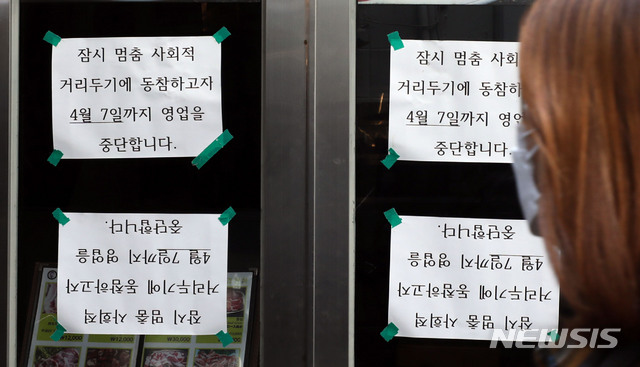 잠시 멈춤 사회적
거리두기에 동참하고자
4월 7일까지 영업을
중단합니다.
잠시 멈춤 사회
거리두기에 동참하고
4월 7일까지 영
중단합니다.
잠시 멈춤 사회적
거리두기에 동참하고자
4월 7일까지 영업을
중단합니다.
잠시 멈춤 사회적
거리두기에 동참하고자
4월 7일까지 영업을
중단합니다.
₩12,000 ₩30,000
NEWSIS